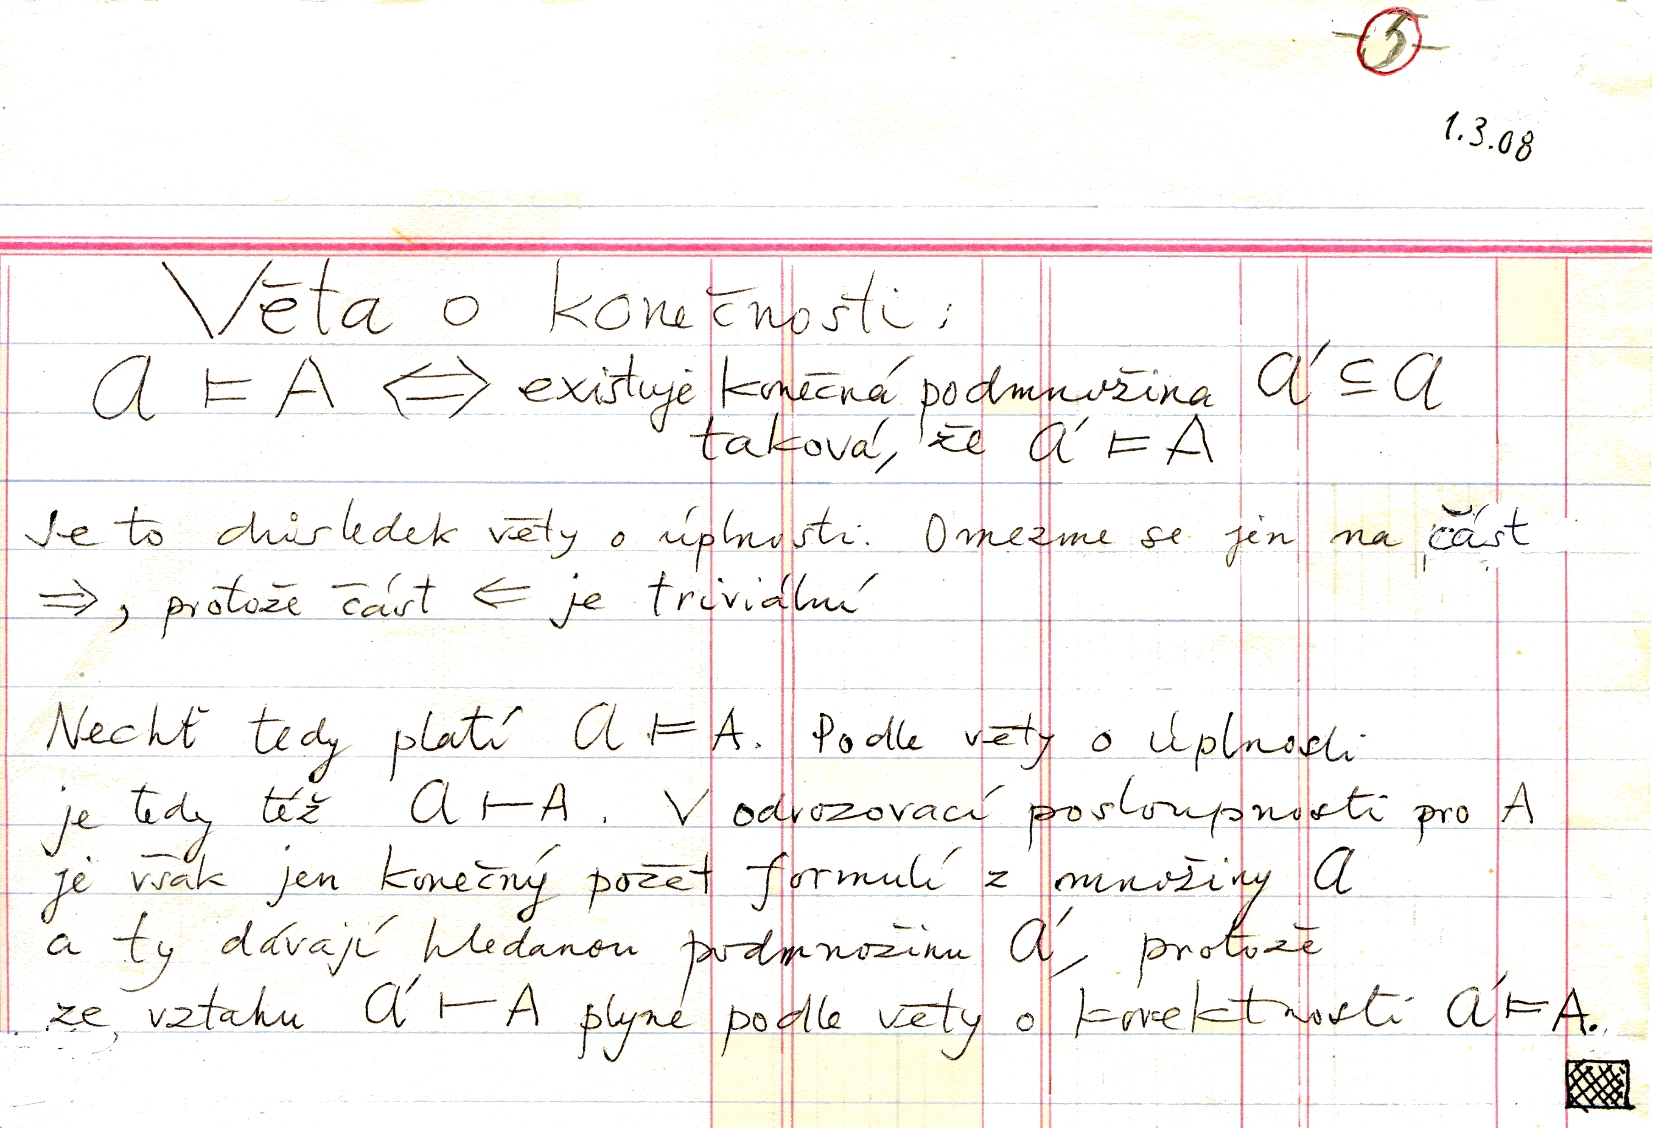 -5-
1.3.08
Věta o konečnosti:
𝒶 ⊨ A ⟺ existuje konečná podmnožina 𝒶′ ⊆ 𝒶
taková, že 𝒶′ ⊨ A
Je to důsledek věty o úplnosti. Omezme se jen na část
⇒, protože část ⇐ je triviální
Nechť tedy platí 𝒶 ⊨ A. Podle věty o úplnosti
je tedy též 𝒶 ⊢ A. V odvozovací posloupnosti pro A
je však jen konečný počet formulí z množiny 𝒶
a ty dávají hledanou podmnožinu 𝒶′, protože
ze vztahu 𝒶′ ⊢ A plyne podle věty o korektnosti 𝒶′ ⊨ A.